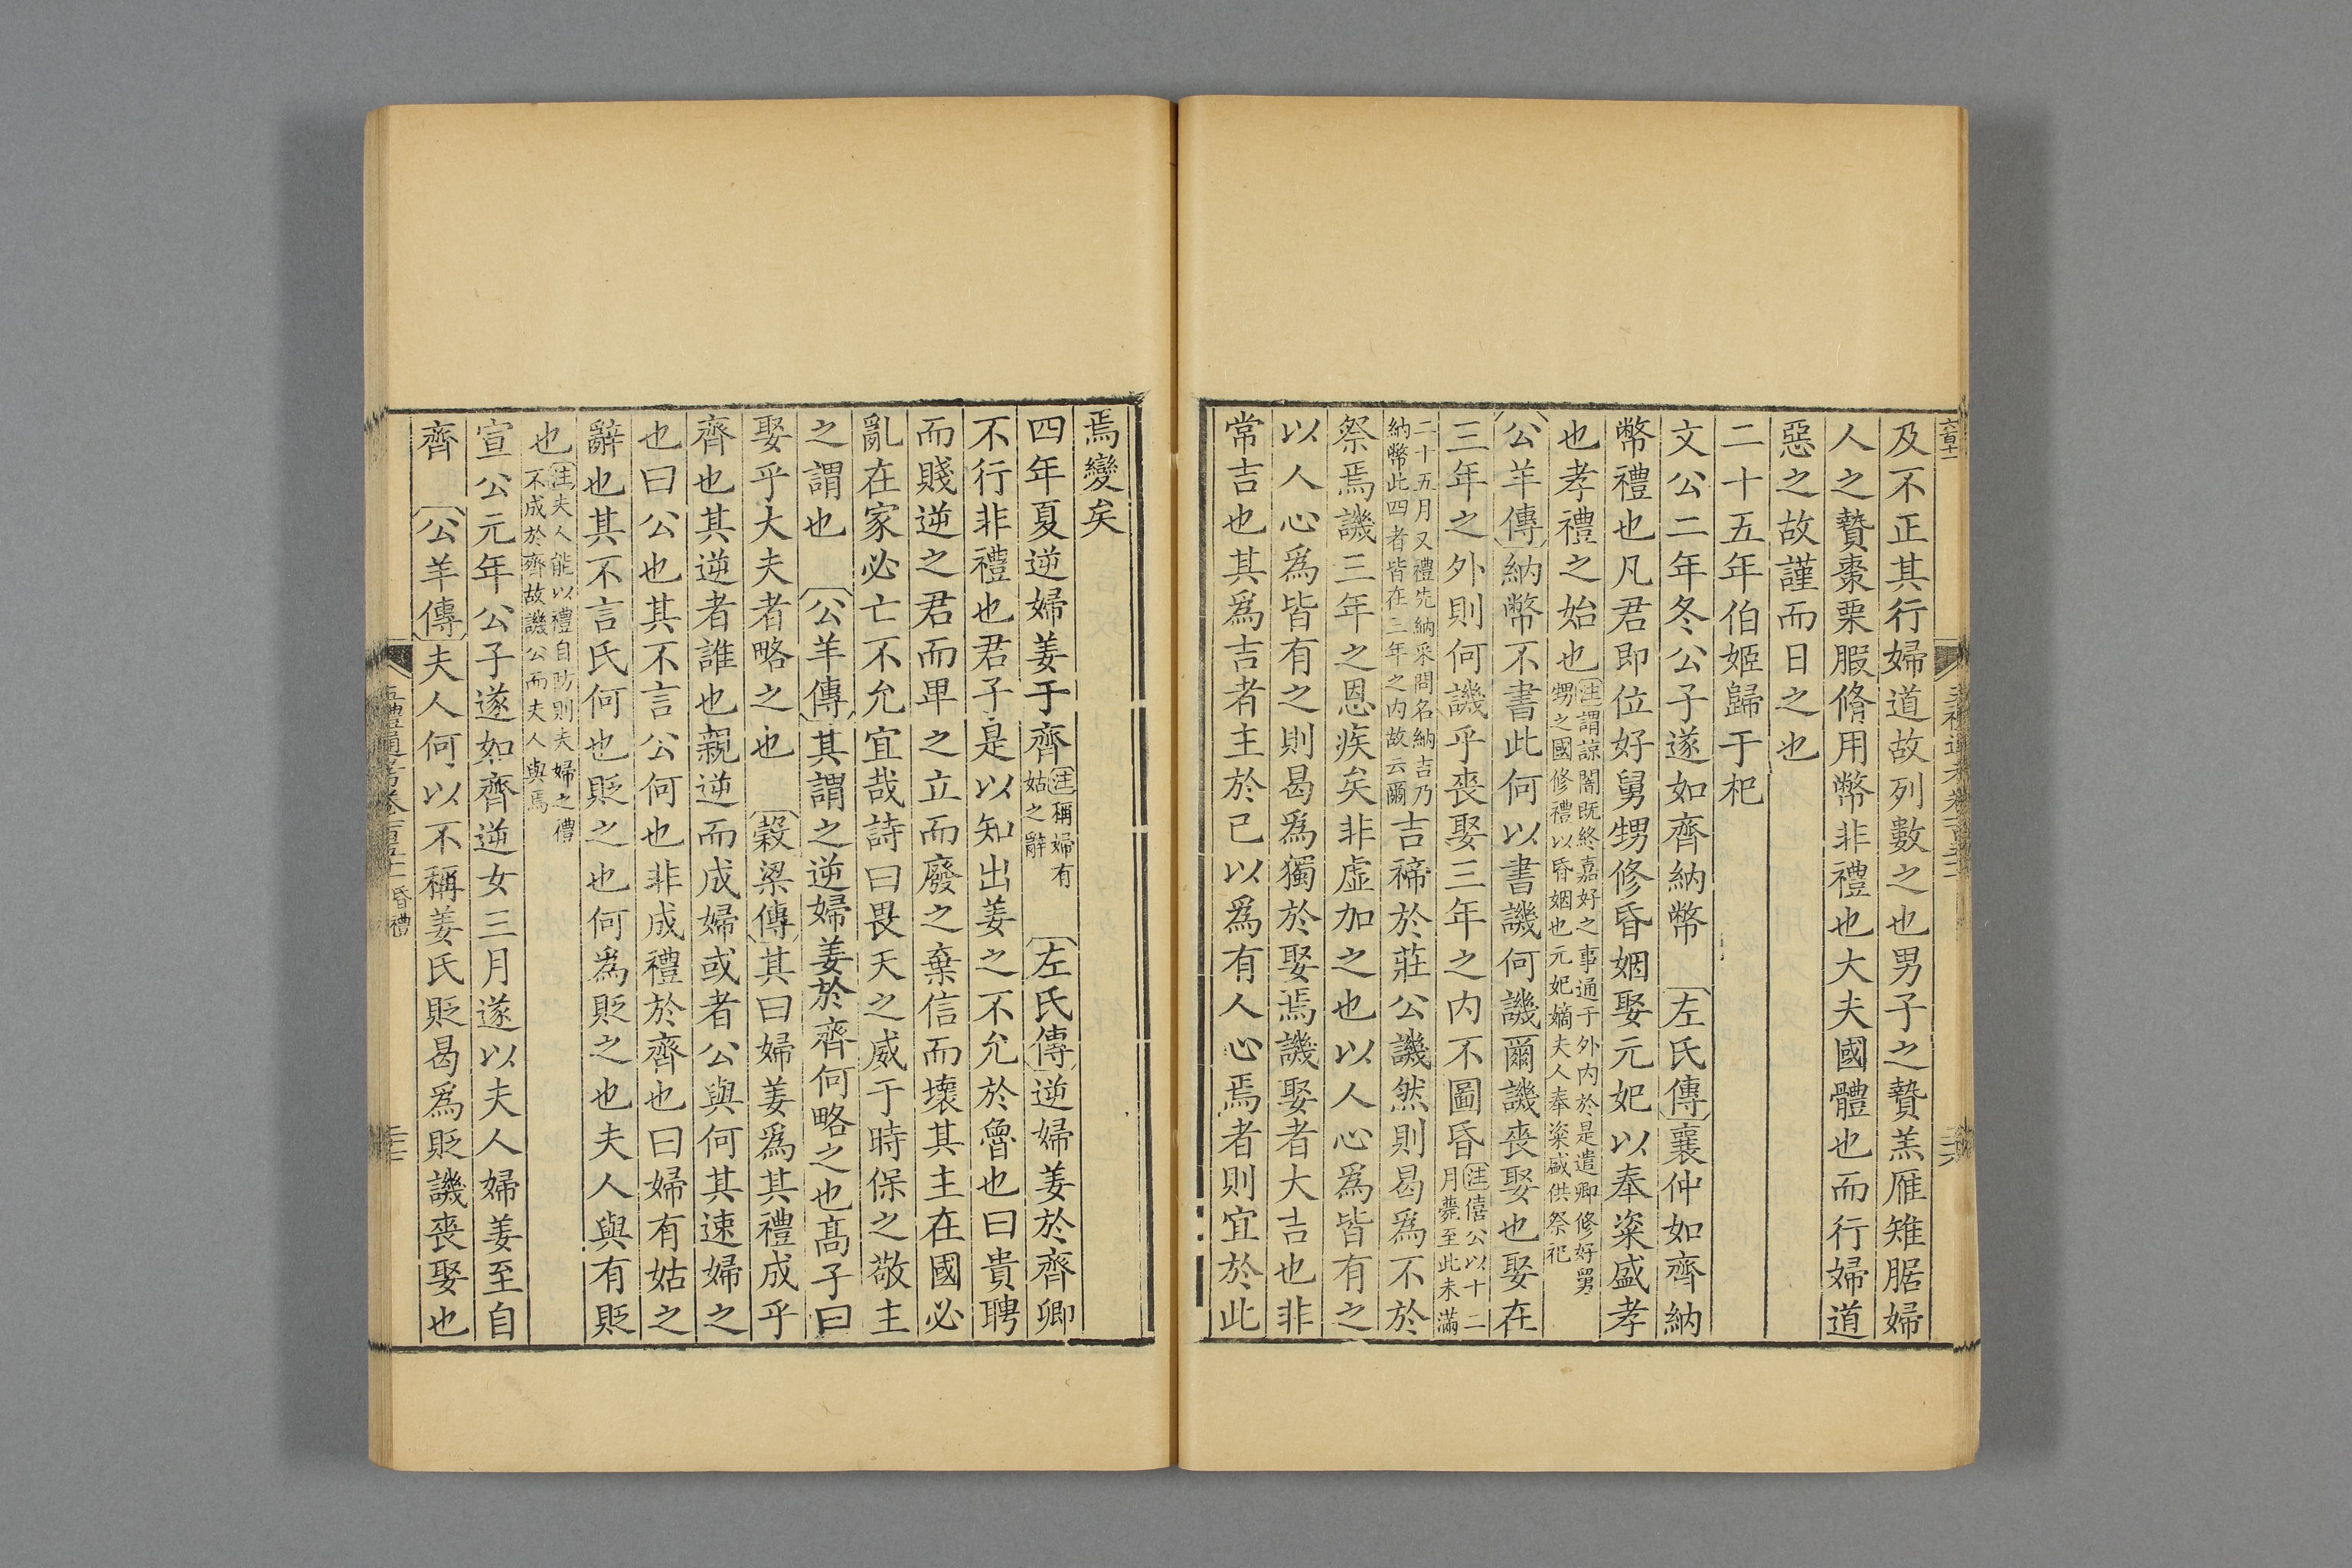 及不正其行婦道故列數之也男子之贄羔雁雉腒婦
人之贄棗栗腶脩用幣非禮也大夫國體也而行婦道
惡之故謹而日之也
二十五年伯姬歸于杞
文公二年冬公子遂如齊納幣 左氏傳襄仲如齊納
幣禮也凡君即位好舅甥修昏姻娶元妃以奉粢盛孝
也孝禮之始也注謂諒闇既終嘉好之事通于外内於是遣卿修好舅
甥之國修禮以昏姻也元妃嫡夫人奉粢盛供祭祀
公羊傳納幣不書此何以書譏何譏爾譏喪娶也娶在
三年之外則何譏乎喪娶三年之内不圖昏注僖公以十二
月薨至此未滿
二十五月又禮先納采問名納吉乃
納幣此四者皆在三年之内故云爾吉禘於莊公譏然則曷爲不於
祭焉譏三年之恩疾矣非虛加之也以人心爲皆有之
以人心爲皆有之則曷爲獨於娶焉譏娶者大吉也非
常吉也其爲吉者主於己以爲有人心焉者則宜於此
焉變矣
四年夏逆婦姜于齊注稱婦有
姑之辭 左氏傳逆婦姜於齊卿
不行非禮也君子是以知出姜之不允於魯也曰貴聘
而賤逆之君而卑之立而廢之棄信而壞其主在國必
亂在家必亡不允宜哉詩曰畏天之威于時保之敬主
之謂也 公羊傳其謂之逆婦姜於齊何略之也高子曰
娶乎大夫者略之也 穀梁傳其曰婦姜爲其禮成乎
齊也其逆者誰也親逆而成婦或者公與何其速婦之
也曰公也其不言公何也非成禮於齊也曰婦有姑之
辭也其不言氏何也貶之也何爲貶之也夫人與有貶
也注夫人能以禮自防則夫婦之禮
不成於齊故譏公而夫人與焉
宣公元年公子遂如齊逆女三月遂以夫人婦姜至自
齊 公羊傳夫人何以不稱姜氏貶曷爲貶譏喪娶也
昏禮